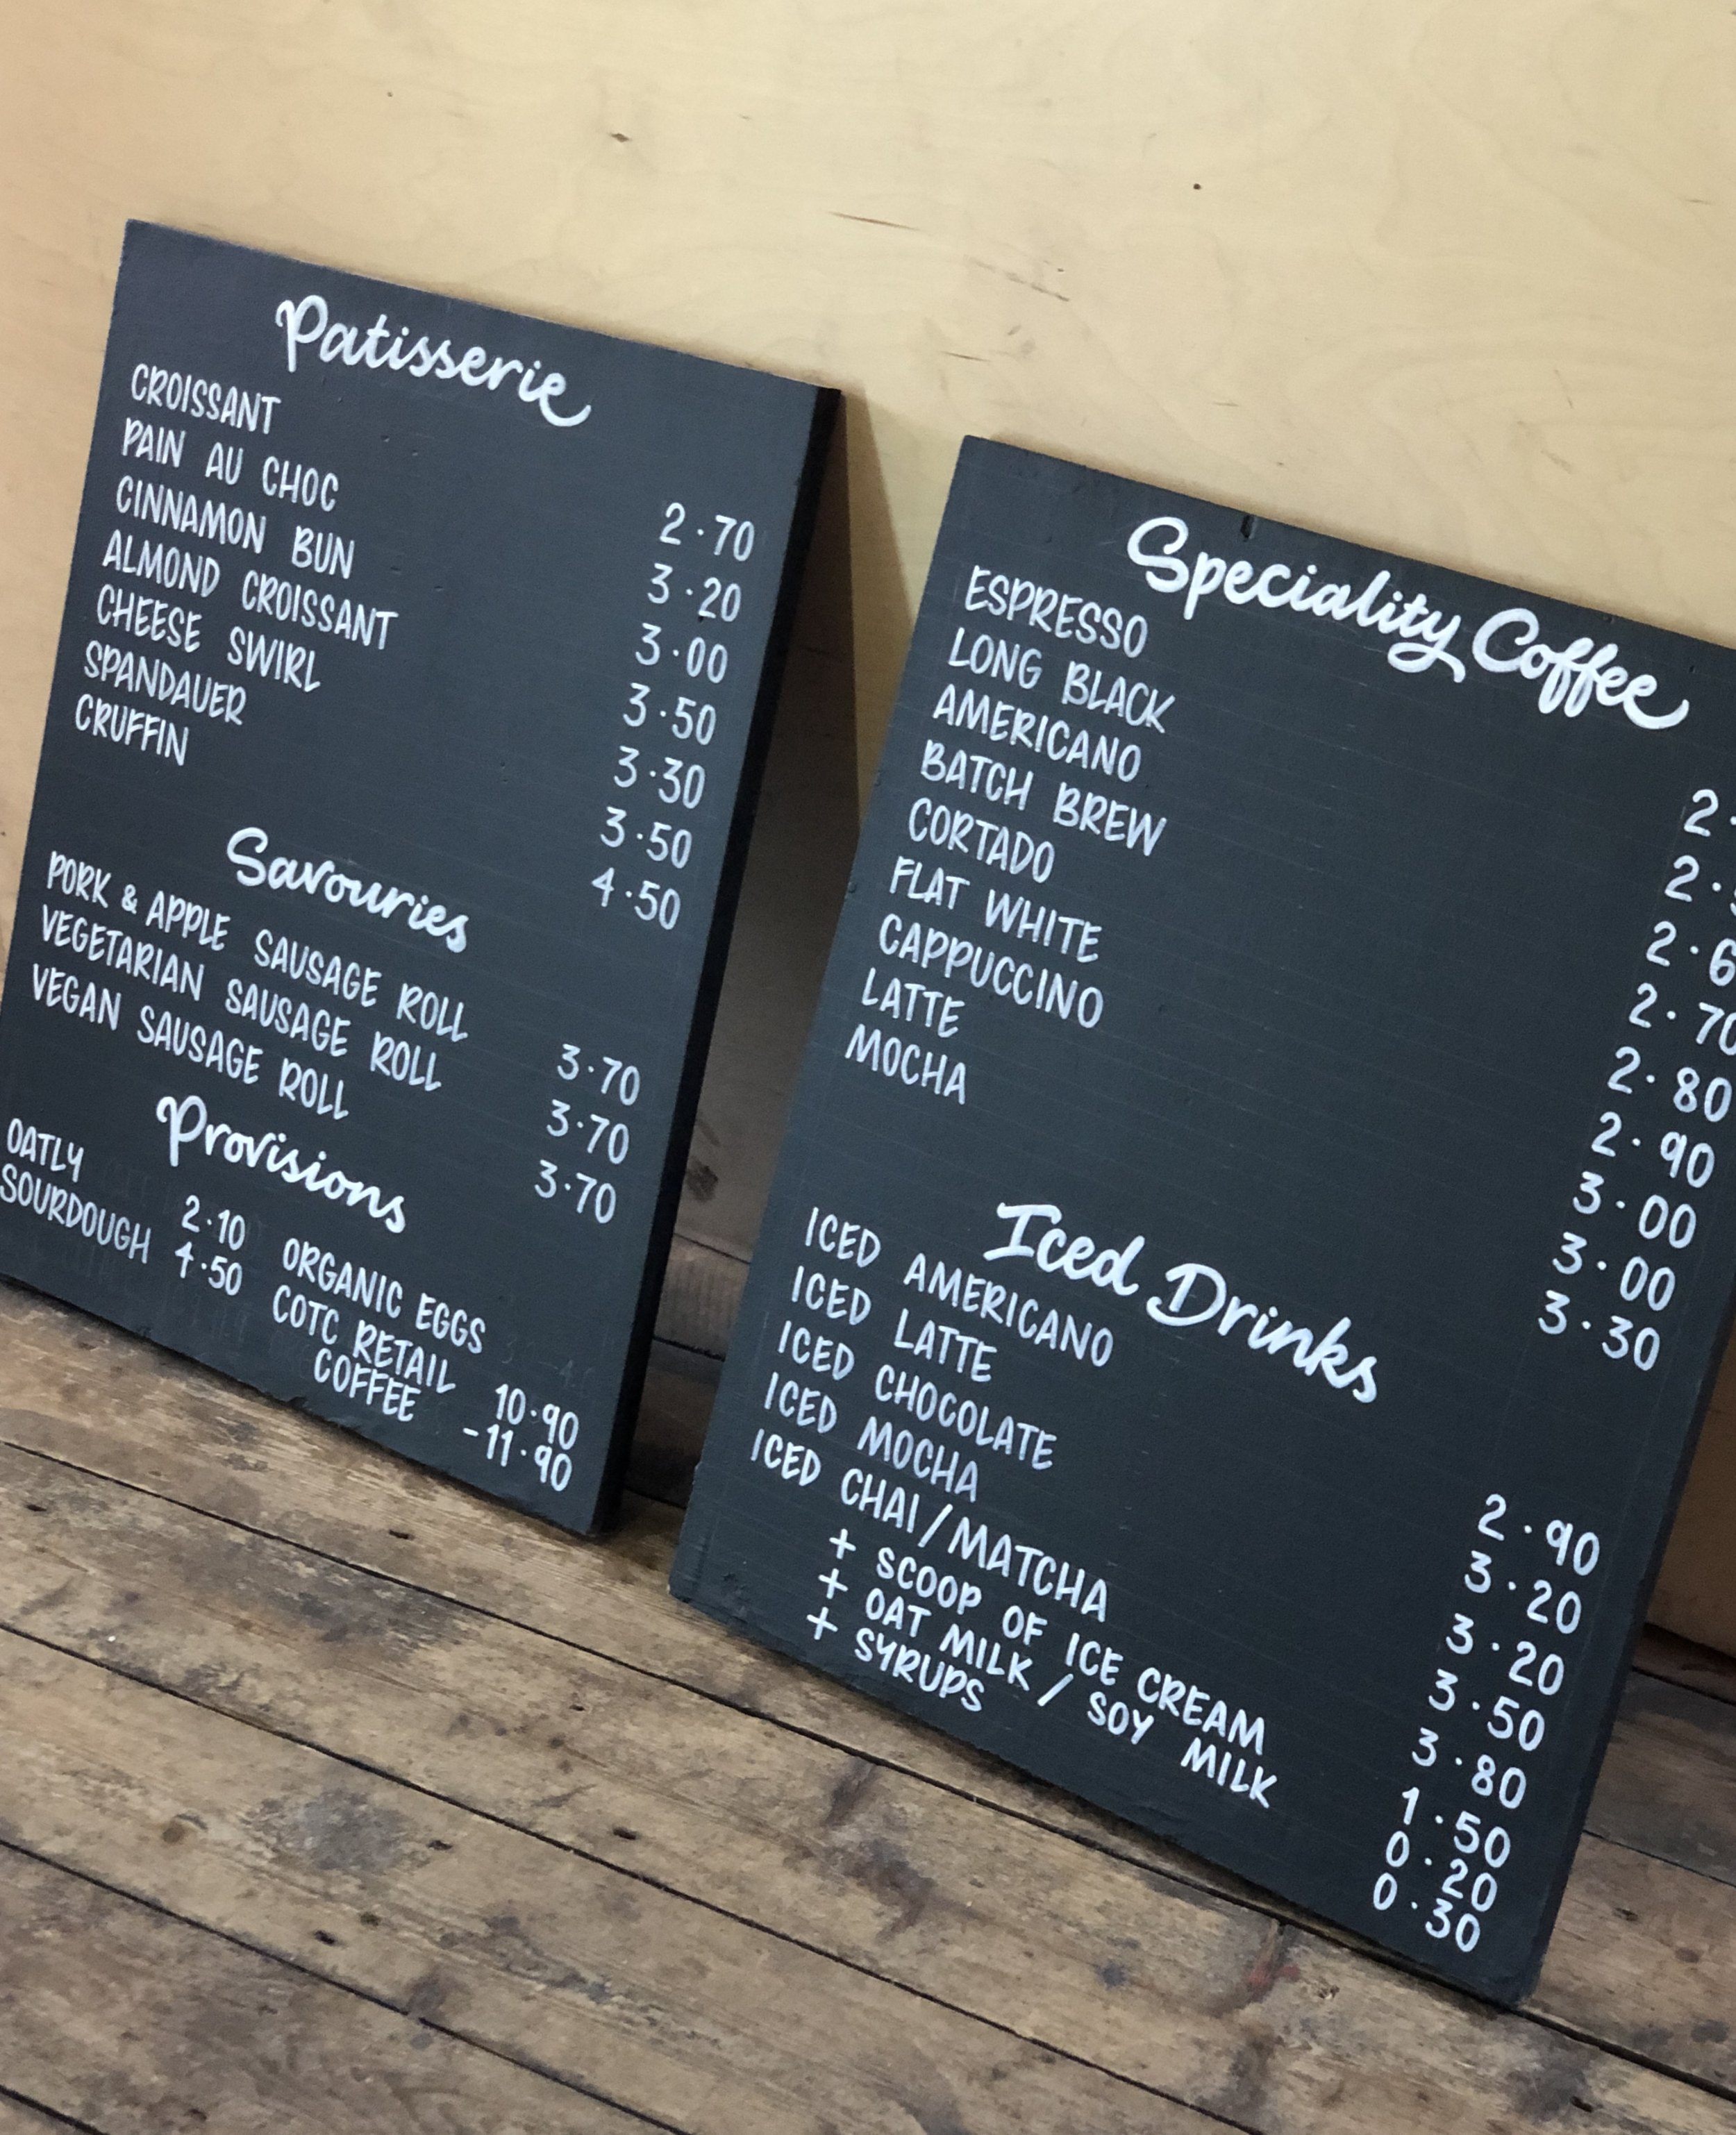 Patisserie
CROISSANT 2·70
PAIN AU CHOC 3·20
CINNAMON BUN 3·00
ALMOND CROISSANT 3·50
CHEESE SWIRL 3·30
SPANDAUER 3·50
CRUFFIN 4·50
Savouries
PORK & APPLE SAUSAGE ROLL 3·70
VEGETARIAN SAUSAGE ROLL 3·70
VEGAN SAUSAGE ROLL 3·70
Provisions
OATLY 2·10 ORGANIC EGGS
SOURDOUGH 4·50 COTC RETAIL 10·90
COFFEE -11·90
Speciality Coffee
ESPRESSO
LONG BLACK
AMERICANO
BATCH BREW 2·70
CORTADO 2·80
FLAT WHITE 2·90
CAPPUCCINO 3·00
LATTE 3·00
MOCHA 3·30
Iced Drinks
ICED AMERICANO 2·90
ICED LATTE 3·20
ICED CHOCOLATE 3·20
ICED MOCHA 3·50
ICED CHAI/MATCHA 3·80
+ SCOOP OF ICE CREAM 1·50
+ OAT MILK / SOY MILK 0·20
+ SYRUPS 0·30